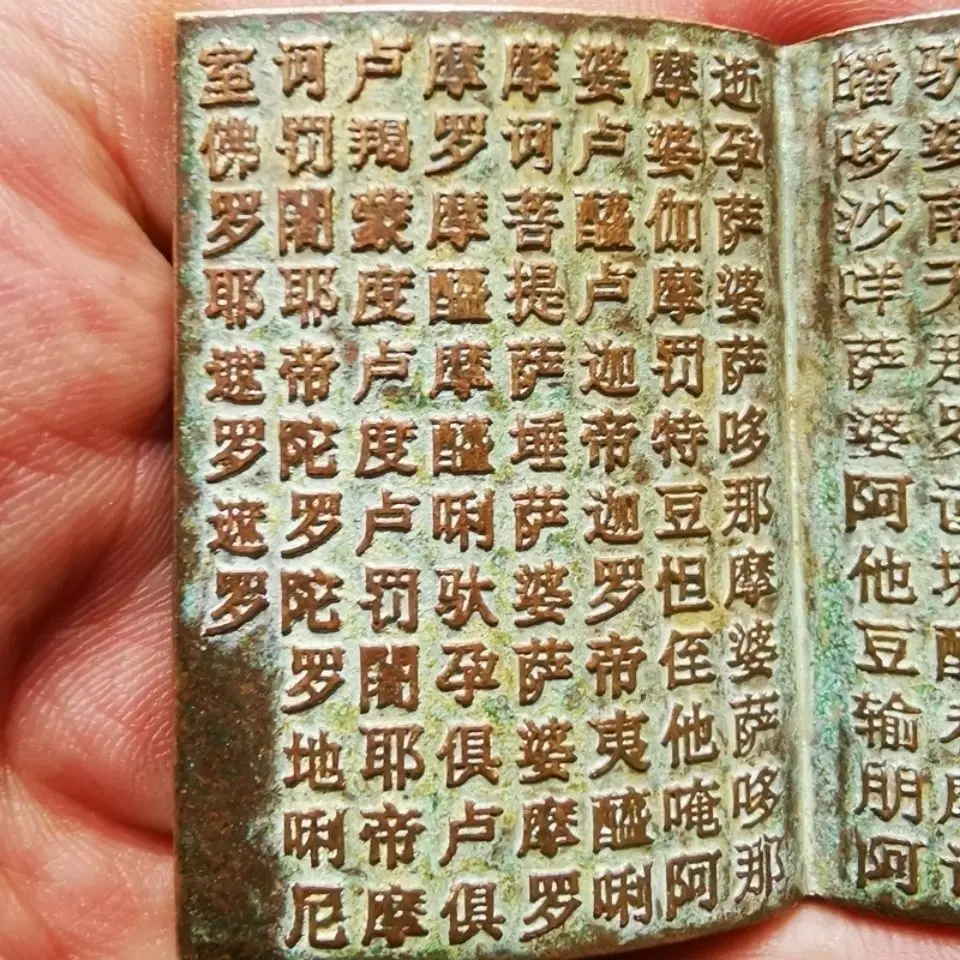 皤哆沙咩萨婆阿他豆输朋阿
逝孕萨婆萨哆那摩婆萨哆那
摩婆伽摩罚特豆怛侄他唵阿
婆卢醯卢迦帝迦罗帝夷醯唎
摩诃菩提萨埵萨婆萨婆摩罗
摩罗摩醯摩醯唎驮孕俱卢俱
卢羯蒙度卢度卢罚闍耶帝摩
诃罚闍耶帝陀罗陀罗地唎尼
室佛罗耶遮罗遮罗